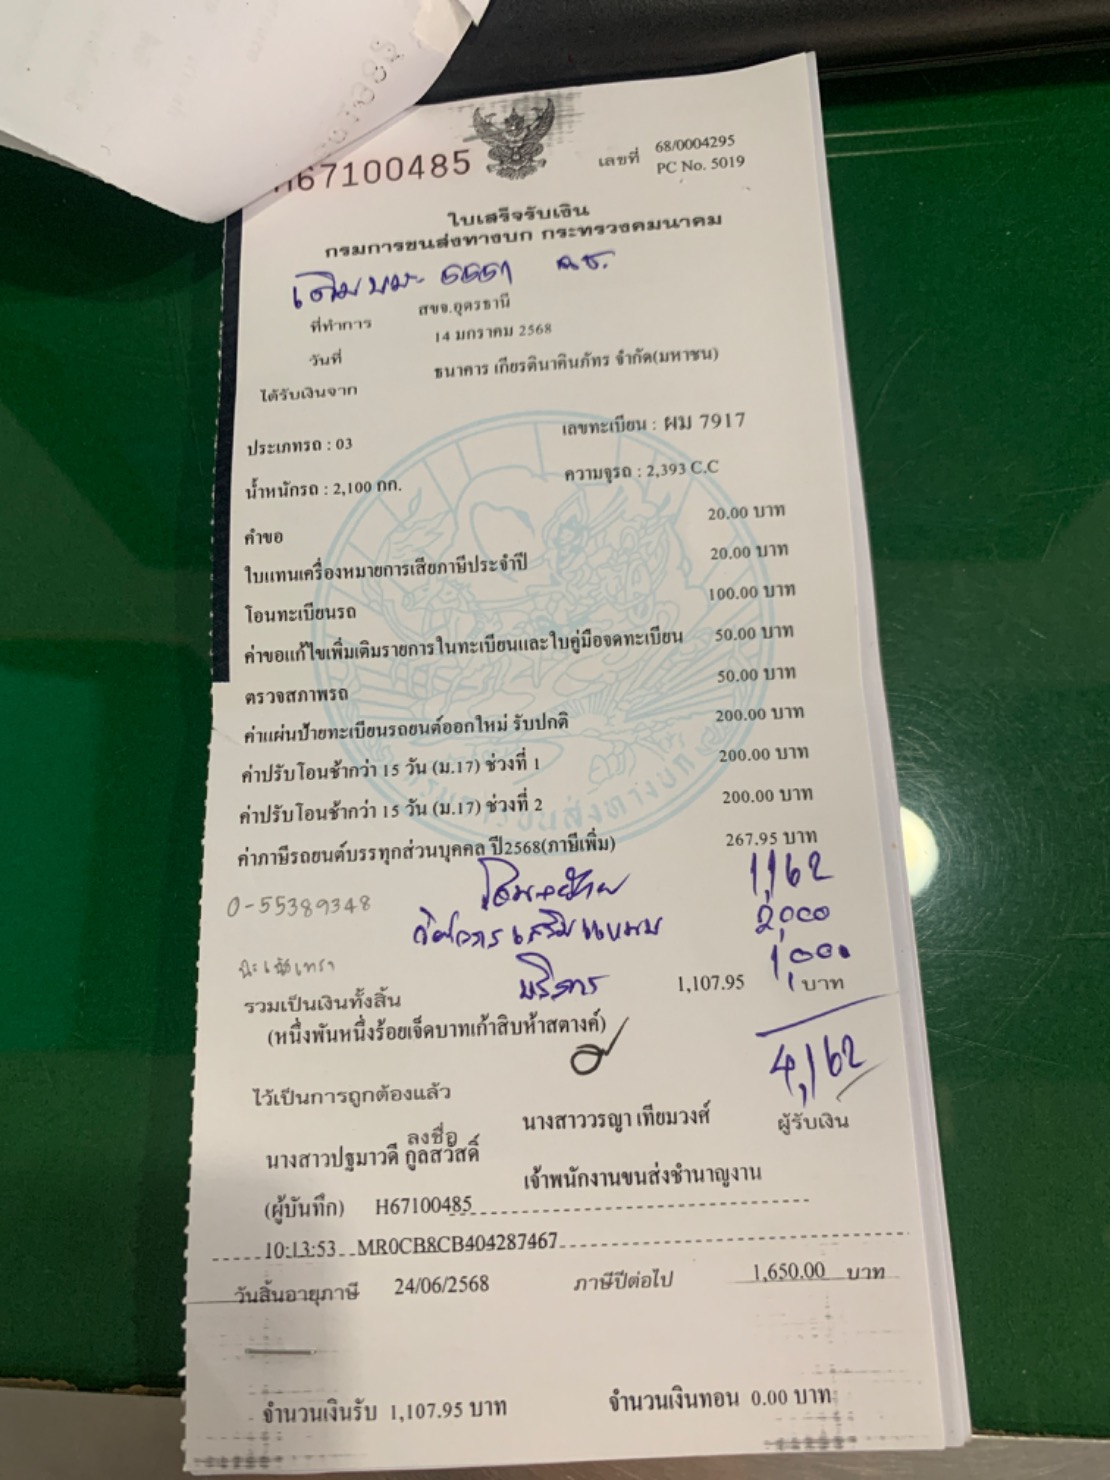 H67100485
เลขที่ 68/0004295
PC No. 5019
ใบเสร็จรับเงิน
กรมการขนส่งทางบก กระทรวงคมนาคม
เดิม
ที่ทำการ สขจ.อุดรธานี
วันที่ 14 มกราคม 2568
ได้รับเงินจาก ธนาคาร เกียรตินาคินภัทร จำกัด(มหาชน)
ประเภทรถ : 03 เลขทะเบียน : ผม 7917
น้ำหนักรถ : 2,100 กก. ความจุรถ : 2,393 C.C
คำขอ 20.00 บาท
ใบแทนเครื่องหมายการเสียภาษีประจำปี 20.00 บาท
โอนทะเบียนรถ 100.00 บาท
ค่าขอแก้ไขเพิ่มเติมรายการในทะเบียนและใบคู่มือจดทะเบียน 50.00 บาท
ตรวจสภาพรถ 50.00 บาท
ค่าแผ่นป้ายทะเบียนรถยนต์ออกใหม่ รับปกติ 200.00 บาท
ค่าปรับโอนช้ากว่า 15 วัน (ม.17) ช่วงที่ 1 200.00 บาท
ค่าปรับโอนช้ากว่า 15 วัน (ม.17) ช่วงที่ 2 200.00 บาท
ค่าภาษีรถยนต์บรรทุกส่วนบุคคล ปี2568(ภาษีเพิ่ม) 267.95 บาท
0-55389348 โอน+ย้าย 1,162
วิศวกรเสริมแหนบ 2,000
บริการ 1,000
รวมเป็นเงินทั้งสิ้น 1,107.95 บาท
(หนึ่งพันหนึ่งร้อยเจ็ดบาทเก้าสิบห้าสตางค์)
4,162
ไว้เป็นการถูกต้องแล้ว
ลงชื่อ นางสาววรญา เทียมวงศ์ ผู้รับเงิน
นางสาวปฐมาวดี กูลสวัสดิ์
เจ้าพนักงานขนส่งชำนาญงาน
(ผู้บันทึก) H67100485
10:13:53 MR0CB8CB404287467
วันสิ้นอายุภาษี 24/06/2568 ภาษีปีต่อไป 1,650.00 บาท
จำนวนเงินรับ 1,107.95 บาท จำนวนเงินทอน 0.00 บาท